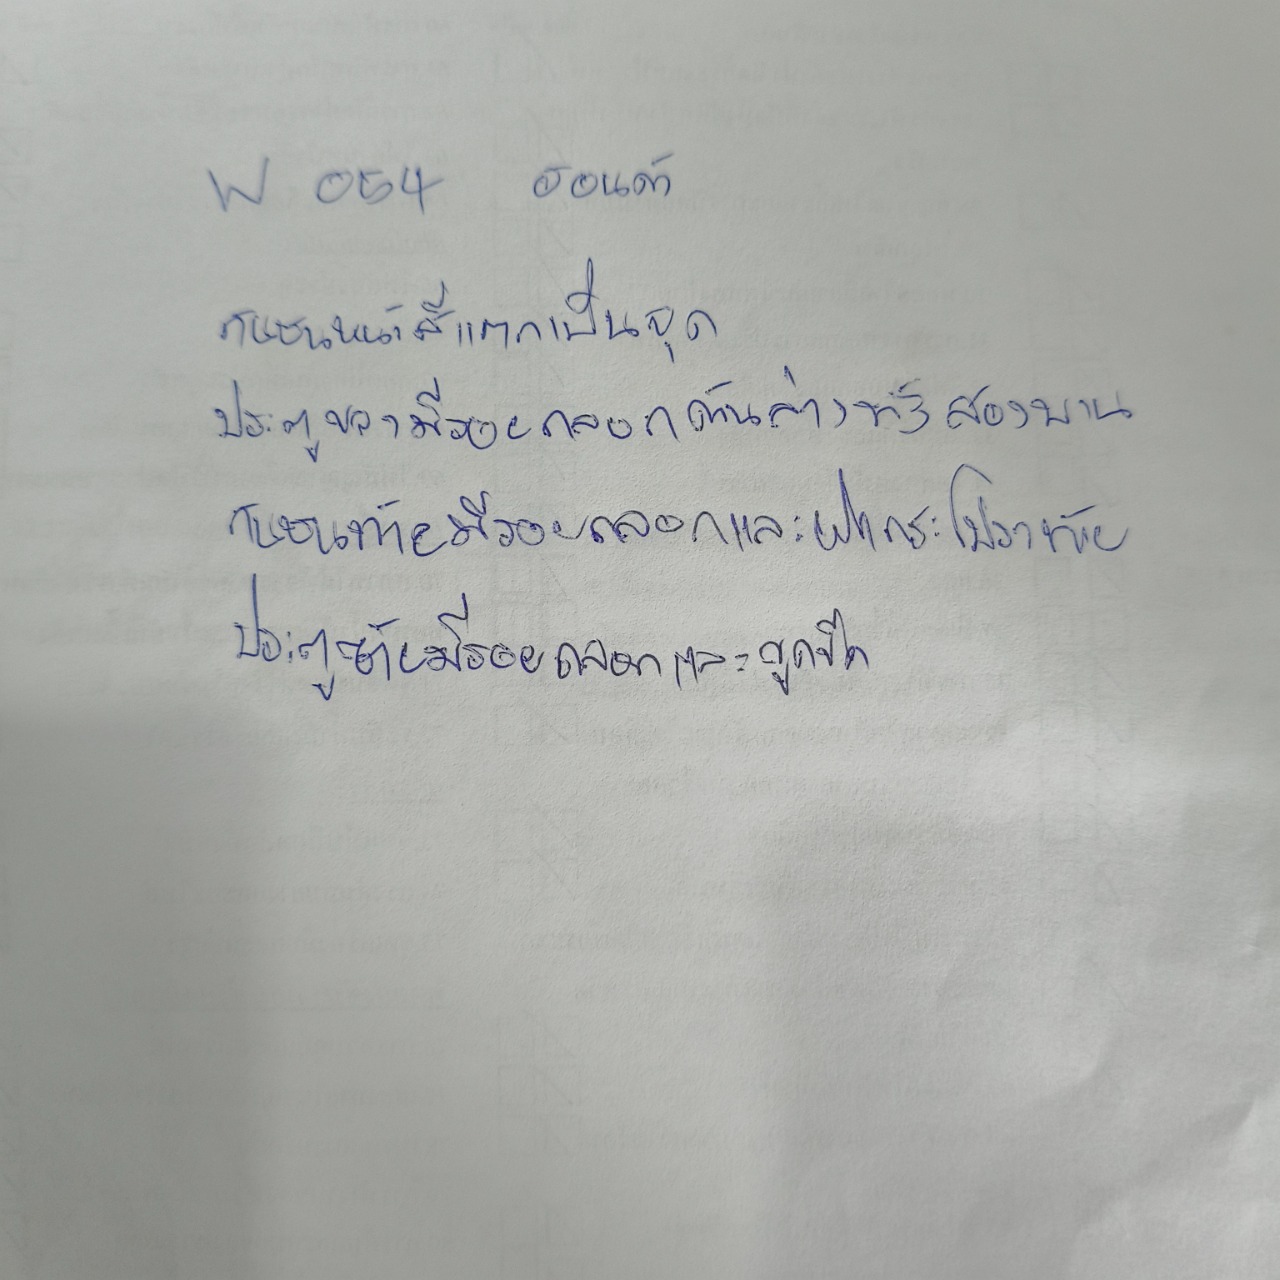 W 054 ฮอนด้า
กันชนหน้าสีแตกเป็นจุด
ประตูขวามีรอยถลอกด้านล่างทั้งสองบาน
กันชนท้ายมีรอยถลอกและฝากระโปรงท้าย
ประตูซ้ายมีรอยถลอกและขูดขีด